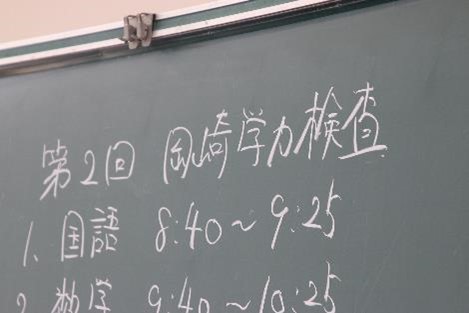 第2回 岡崎学力検査
1. 国語 8:40～9:25
2. 数学 9:40～10:25